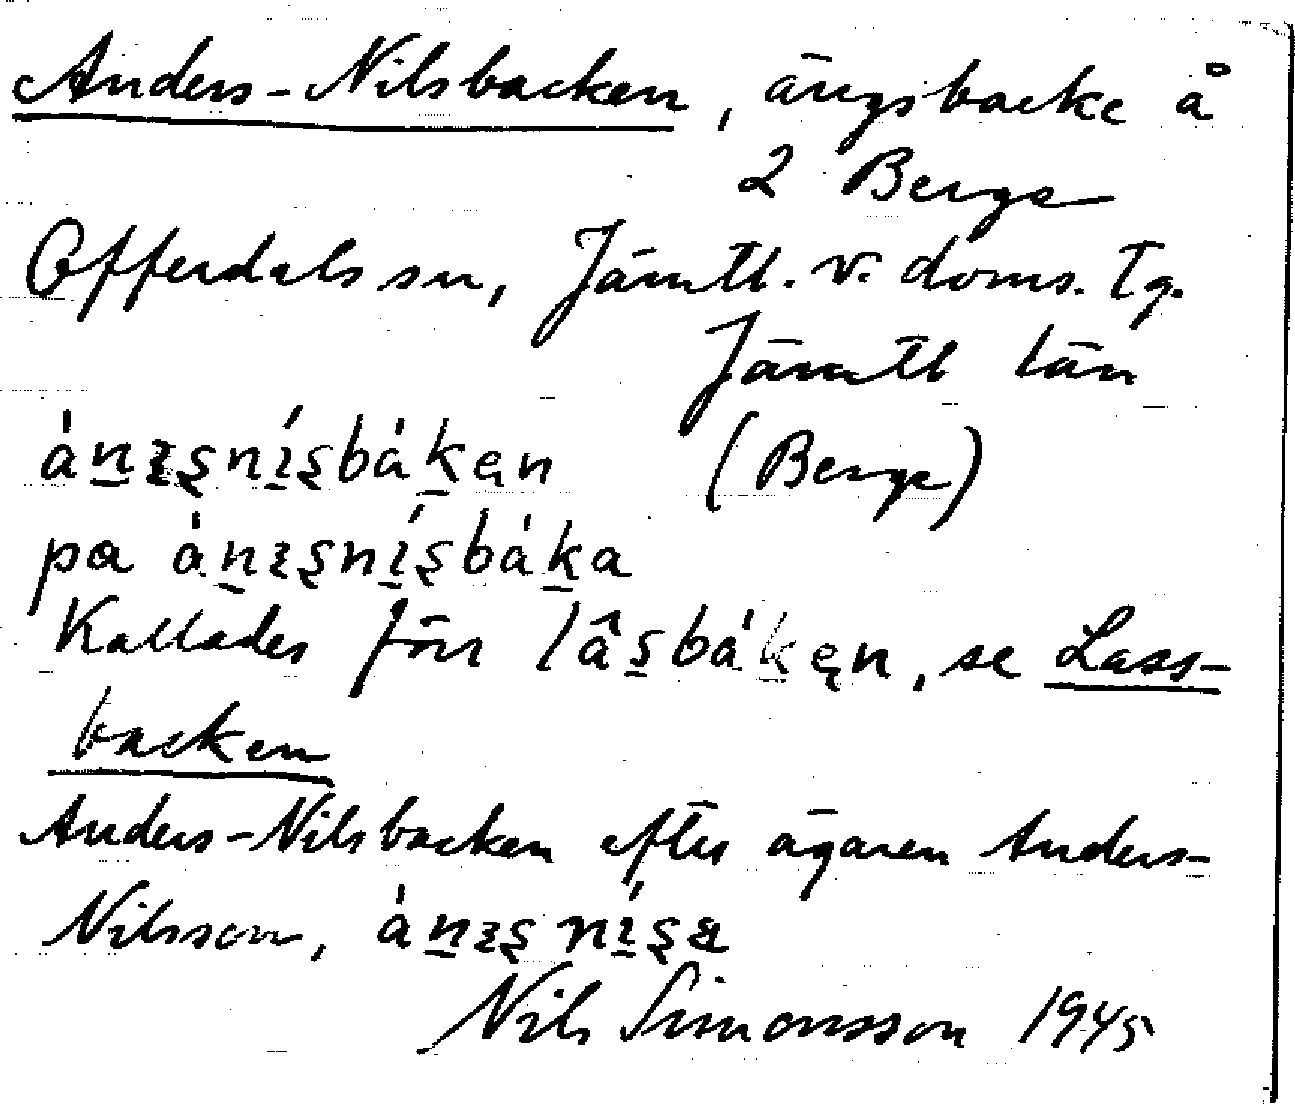 Anders-Nilsbacken, ängsbacke å
2 Berge
Offerdals sn, Jämtl. v. doms. tg.
Jämtl län
(Berge)
pa
Kallades förr, se Lass-
backen
Anders-Nilsbacken efter ägaren Anders-
Nilsson,
Nils Simonsson 1945